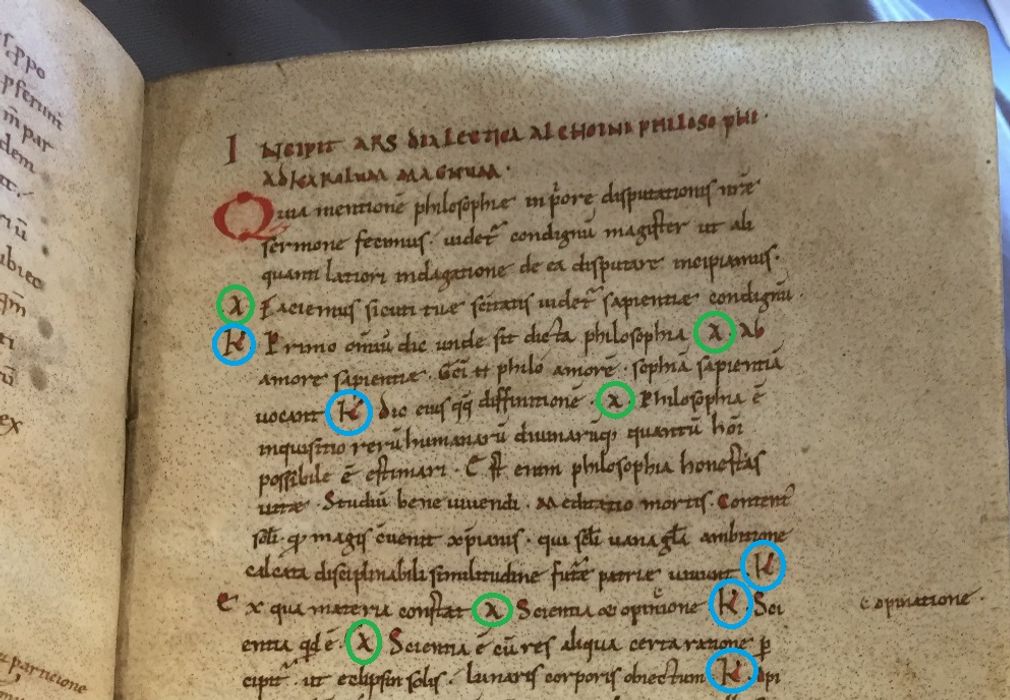 ſ ppo
pſerunt
m̄ par
dem
ubiec
qm̄
ex
INCIPIT ARS DIALECTICA ALCHOINI PHILOSOPHI·
AD KAROLUM MAGNUM·
Quia mentionē philoſophiæ in priore diſputationiſ nr̄æ
ſermone fecimuſ· uidet᷑ condignū magiſter ut ali
quanti latiori indagatione de ea diſputare incipiamuſ·
A Faciemuſ sicuti tuæ ſcītatiſ uidet᷑ ſapientiæ condignū·
K Primo om̄iū dic unde ſit dicta philoſophia A· Ab
amore ſapientiæ· Gr̄ci philo amorē· ſophiā ſapientiā
uocant K Dic eiuſ qq̨ diffinitionē· A Philoſophia ē
inquiſitio rerū humanarū diuinarūq; quantū hōi
poſſibile ē eſtimari· Eſt enim philoſophia honeſtaſ
uitæ· Studiū bene uiuendi· Meditatio mortiſ· Contēt᷑
ſcl̄i· qđ magiſ cōuenit xp̄ianiſ· qui ſcl̄i uana gl̄a ambitione
calcata diſciplinabili ſimilitudine futuræ patriæ uiuunt· K
Ex qua materia conſtat A Scientia & opinione K Sci
entia qđ ē A Scientia ē cū reſ aliqua certa ratione p̱
cipit᷑· ut eclipſin ſoliſ· lunariſ corporiſ obiectum K Opi
& opinatione·
particione